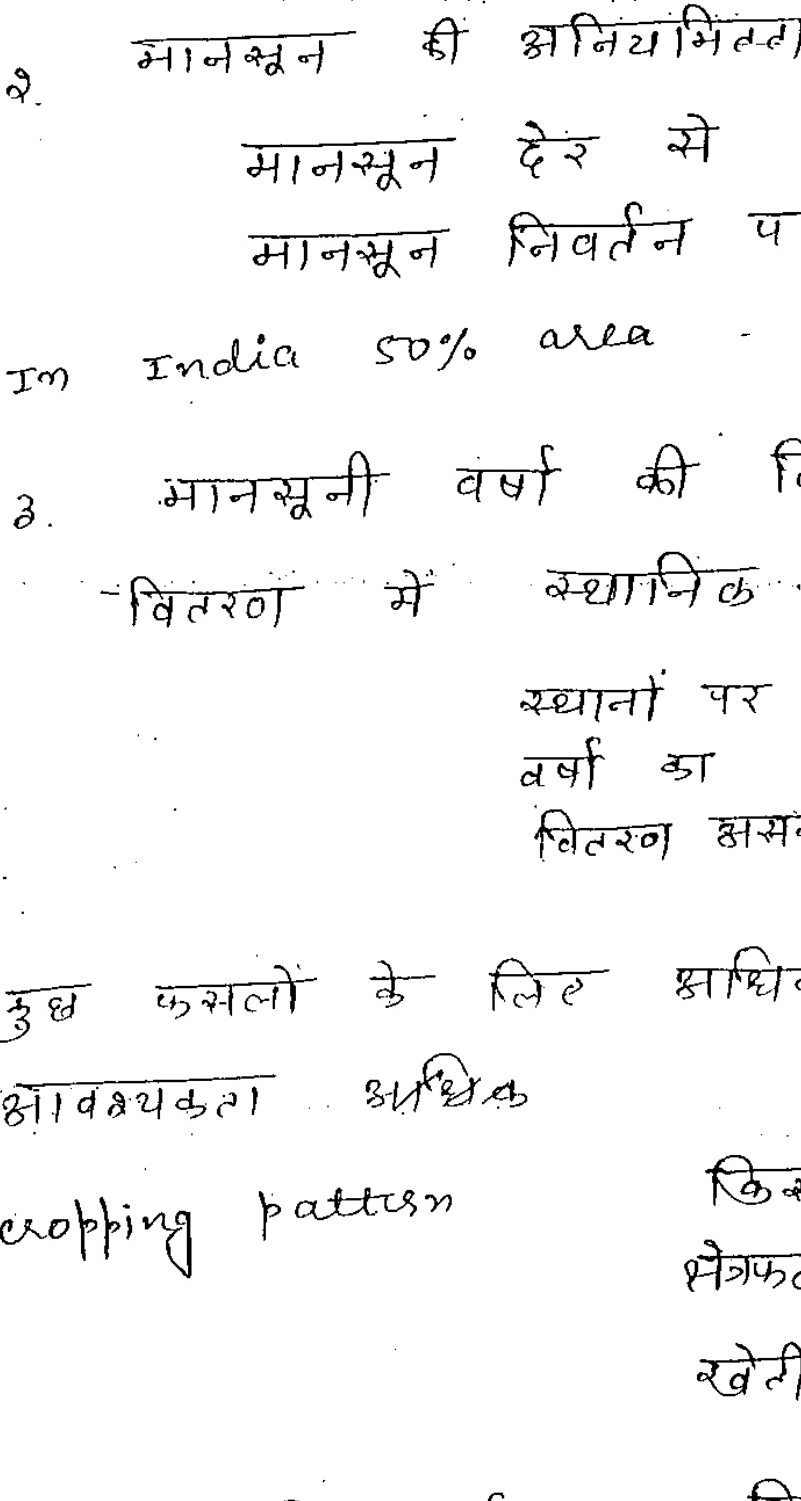 २. मानसून की अनियमितता
मानसून देर से
मानसून निवर्तन प
In India 50% area -
३. मानसूनी वर्षा की वि
- वितरण में स्थानिक
स्थानों पर
वर्षा का
वितरण अस
कुछ फसलों के लिए अधि
आवश्यकता अधिक
cropping pattern कि
क्षेत्रफ
खेती